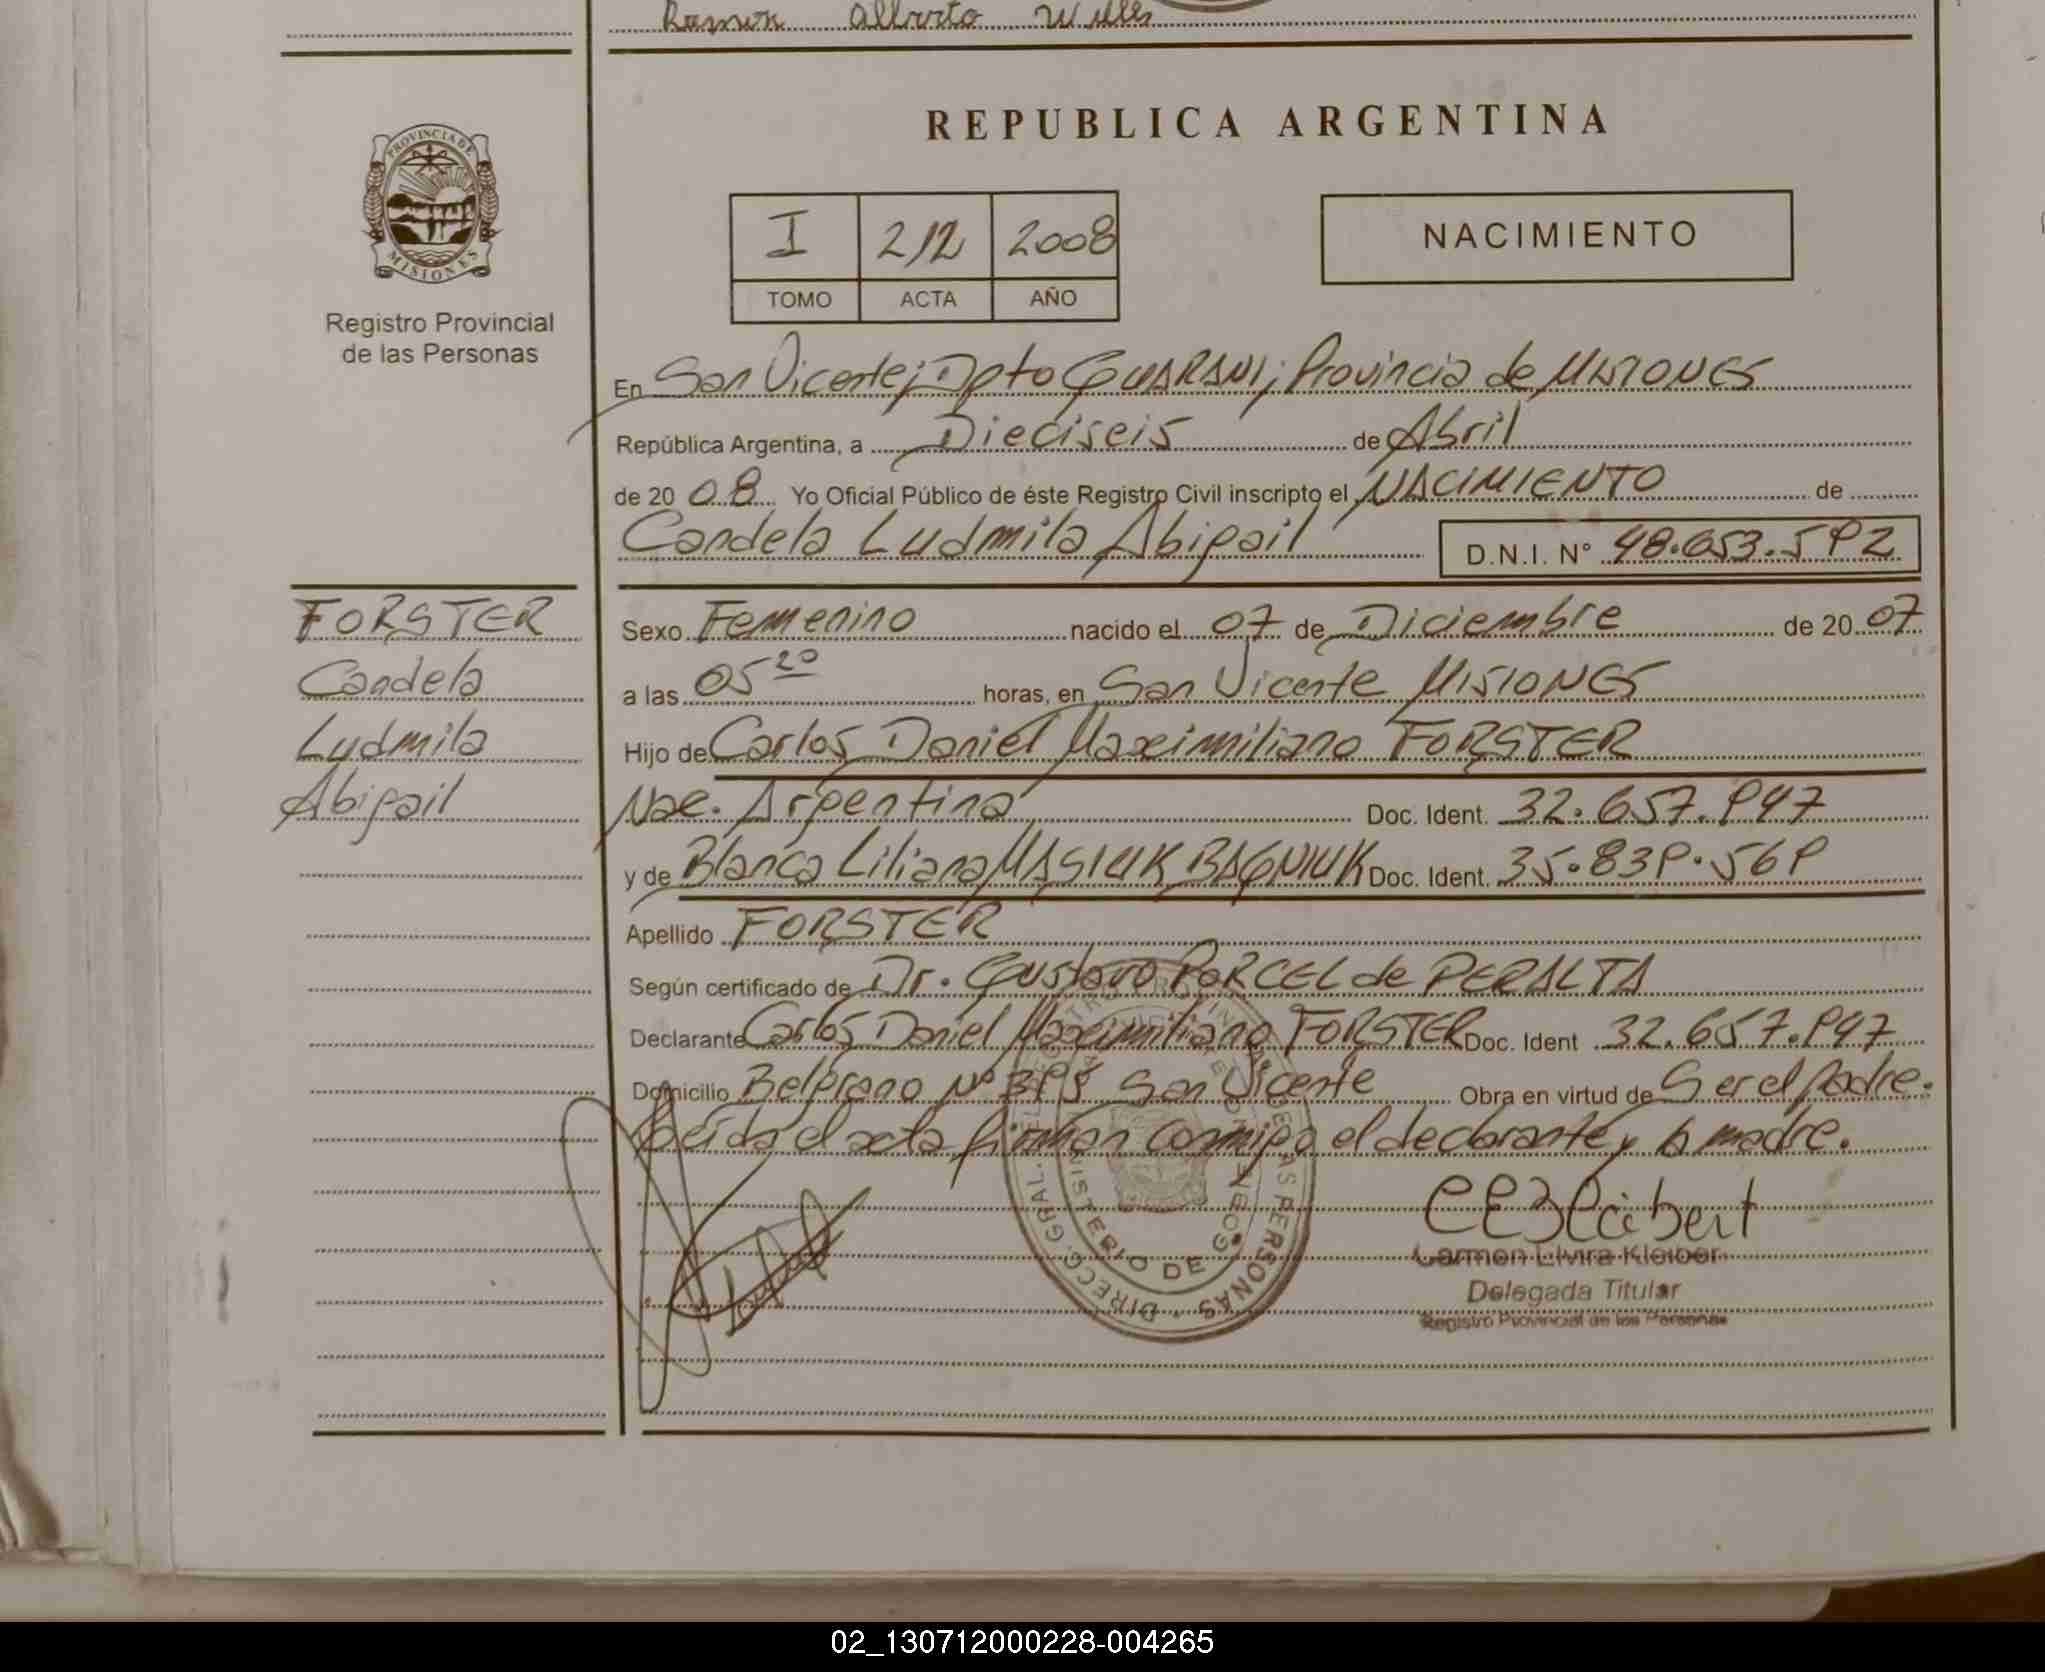 Ramón Alberto Wells
REPUBLICA ARGENTINA
PROVINCIA DE
MISIONES
Registro Provincial
de las Personas
I 212 2008
TOMO ACTA AÑO
NACIMIENTO
En San Vicente; Dpto GUARANI; Provincia de MISIONES
República Argentina, a Dieciseis de Abril
de 2008 Yo Oficial Público de éste Registro Civil inscripto el NACIMIENTO de
Candela Ludmila Abigail D.N.I. N° 48.653.592
FORSTER
Candela
Ludmila
Abigail
Sexo Femenino nacido el 07 de Diciembre de 2007
a las 05 20 horas, en San Vicente MISIONES
Hijo de Carlos Daniel Maximiliano FORSTER
Nac. Argentina Doc. Ident. 32.657.947
y de Blanca Liliana MASIUK BAGNIUK Doc. Ident. 35.839.569
Apellido FORSTER
Según certificado de Dr. Gustavo PORCEL de PERALTA
Declarante Carlos Daniel Maximiliano FORSTER Doc. Ident 32.657.947
Domicilio Belgrano N° 398 San Vicente Obra en virtud de Ser el padre.
Leída el acta firman conmigo el declarante y la madre.
DIRECC. GRAL. PERSONAS
MINISTERIO DE GOB
Carmen Elvira Kleiber
Delegada Titular
Registro Provincial de las Personas
02_130712000228-004265